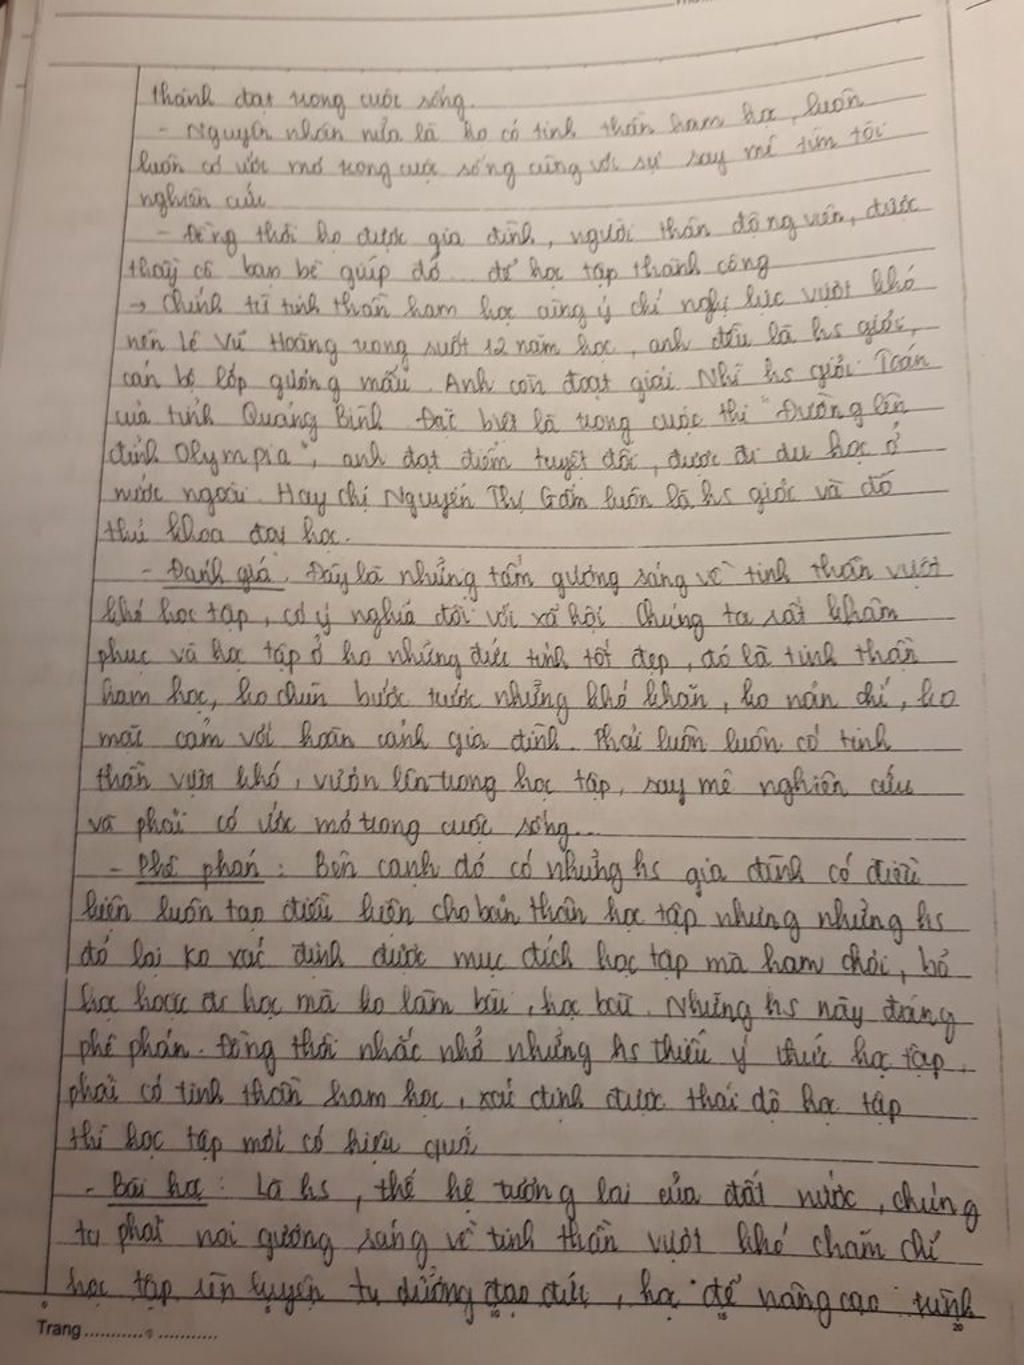 thành đạt trong cuộc sống.
- Nguyên nhân nữa là họ có tinh thần ham học, luôn
luôn có ước mơ trong cuộc sống cùng với sự say mê tìm tòi
nghiên cứu
- Đồng thời họ được gia đình, người thân động viên, được
thầy cô bạn bè giúp đỡ... để học tập thành công
→ Chính từ tinh thần ham học cùng ý chí nghị lực vượt khó
nên Lê Vũ Hoàng trong suốt 12 năm học, anh đều là hs giỏi,
cán bộ lớp gương mẫu. Anh còn đoạt giải Nhì hs giỏi Toán
của tỉnh Quảng Bình. Đặc biệt là trong cuộc thi "Đường lên
đỉnh Olympia", anh đạt điểm tuyệt đối, được đi du học ở
nước ngoài. Hay chị Nguyễn Thị Gấm luôn là hs giỏi và đỗ
thủ khoa đại học.
- Đánh giá. Đây là những tấm gương sáng về tinh thần vượt
khó học tập, có ý nghĩa đối với xã hội. Chúng ta rất khâm
phục và học tập ở họ những đức tính tốt đẹp, đó là tinh thần
ham học, ko chùn bước trước những khó khăn, ko nản chí, ko
mặc cảm với hoàn cảnh gia đình. Phải luôn luôn có tinh
thần vượt khó, vươn lên trong học tập, say mê nghiên cứu
và phải có ước mơ trong cuộc sống...
- Phê phán: Bên cạnh đó có những hs gia đình có điều
kiện luôn tạo điều kiện cho bản thân học tập nhưng những hs
đó lại ko xác định được mục đích học tập mà ham chơi, bỏ
học hoặc đi học mà ko làm bài, học bài. Những hs này đáng
phê phán. Đồng thời nhắc nhở những hs thiếu ý thức học tập,
phải có tinh thần ham học, xác định được thái độ học tập
thì học tập mới có hiệu quả
- Bài học: Là hs, thế hệ tương lai của đất nước, chúng
ta phải noi gương sáng về tinh thần vượt khó chăm chỉ
học tập rèn luyện tu dưỡng đạo đức, học để nâng cao trình
Trang